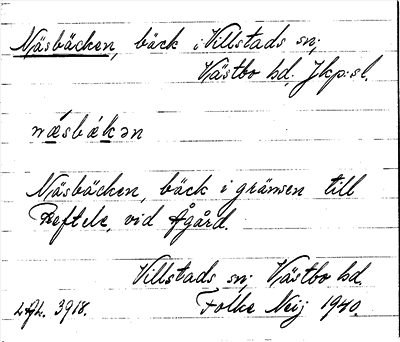 Näsbäcken, bäck i Villstads sn;
Västbo hd; Jkp:sl.
næsbækən
Näsbäcken, bäck i gränsen till
Reftele, vid Ågård.
Villstads sn; Västbo hd.
LAL. 3918. Folke Neij 1940.